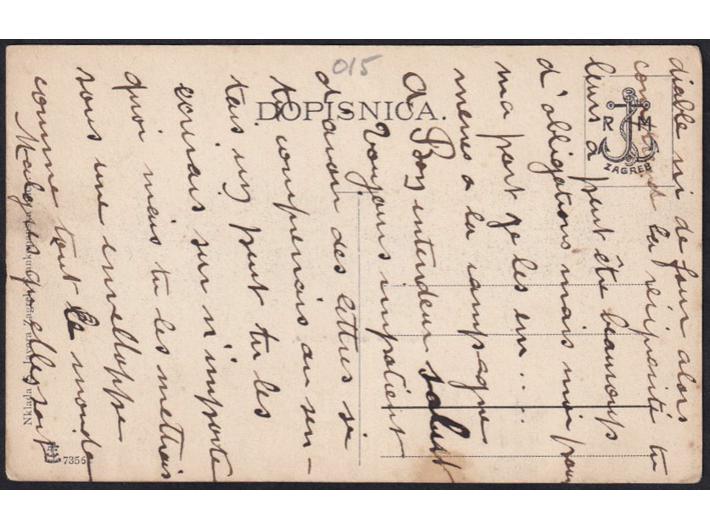 015
DOPISNICA.
R M
ZAGREB
diable ni de four alors
la réciprocité tu
leurs a peut être beaucoup
d'obligations mais moi pour
ma part je les em.....
menes à la campagne
A Bon entendeur salut
Toujours impatient
d'avoir des lettres si
tu comprenais au sen-
tais un peut tu les
ecrirais sur n'importe
quoi mais tu les mettrais
sous une envelloppe
comme tout le monde
Malgres quelles soit
Naklada
7356